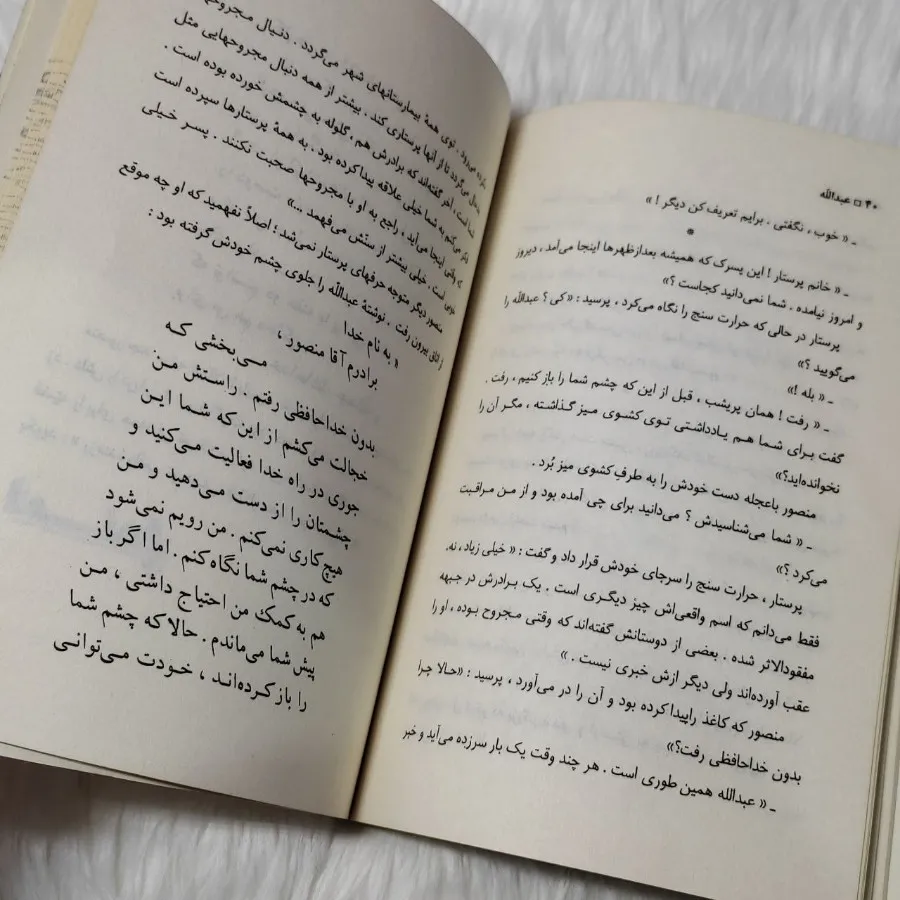 ۴۰ □ عبدالله
ـ « خوب ، نگفتی . برایم تعریف کن دیگر ! »
*
ـ « خانم پرستار ! این پسرک که همیشه بعدازظهرها اینجا می‌آمد ، دیروز
و امروز نیامده . شما نمی‌دانید کجاست ؟»
پرستار در حالی که حرارت سنج را نگاه می‌کرد ، پرسید : « کی ؟ عبدالله را
می‌گویید ؟»
ـ « بله !»
ـ « رفت ! همان پریشب ، قبل از این که چشم شما را باز کنیم ، رفت .
گفت برای شما هم یادداشتی توی کشوی میز گذاشته ، مگر آن را
نخوانده‌اید؟»
منصور باعجله دست خودش را به طرفِ کشوی میز بُرد .
ـ « شما می‌شناسیدش ؟ می‌دانید برای چی آمده بود و از من مراقبت
می‌کرد ؟»
پرستار ، حرارت سنج را سرجای خودش قرار داد و گفت : « خیلی زیاد ، نه.
فقط می‌دانم که اسم واقعی‌اش چیز دیگری است . یک برادرش در جبهه
مفقودالاثر شده . بعضی از دوستانش گفته‌اند که وقتی مجروح بوده ، او را
عقب آورده‌اند ولی دیگر ازش خبری نیست . »
منصور که کاغذ راپیدا کرده بود و آن را در می‌آورد ، پرسید : «حالا چرا
بدون خداحافظی رفت؟»
ـ « عبدالله همین طوری است . هر چند وقت یک بار سرزده می‌آید و خبر
می‌رود . توی همهٔ بیمارستانهای شهر می‌گردد . دنبال
می‌گردد تا از آنها پرستاری کند . بیشتر از همه دنبال مجروحهایی مثل
شما است . آخر گفته‌اند که برادرش هم ، گلوله به چشمش خورده بوده است .
فکر می‌کنم به شما خیلی علاقه پیدا کرده بود . به همهٔ پرستارها سپرده است
وقتی اینجا می‌آید ، راجع به او با مجروحها صحبت نکنند . پسر خیلی
خوبی است . خیلی بیشتر از سنّش می‌فهمد ...»
منصور دیگر متوجه حرفهای پرستار نمی‌شد ؛ اصلاً نفهمید که او چه موقع
از اتاق بیرون رفت . نوشتهٔ عبدالله را جلوی چشم خودش گرفته بود :
« به نام خدا
برادرم آقا منصور ، می‌بخشی که
بدون خداحافظی رفتم . راستش من
خجالت می‌کشم از این که شما این
جوری در راه خدا فعالیت می‌کنید و
چشمتان را از دست می‌دهید و من
هیچ کاری نمی‌کنم . من رویم نمی‌شود
که در چشم شما نگاه کنم . اما اگر باز
هم به کمک من احتیاج داشتی ، من
پیش شما می‌ماندم . حالا که چشم شما
را باز کرده‌اند ، خودت می‌توانی